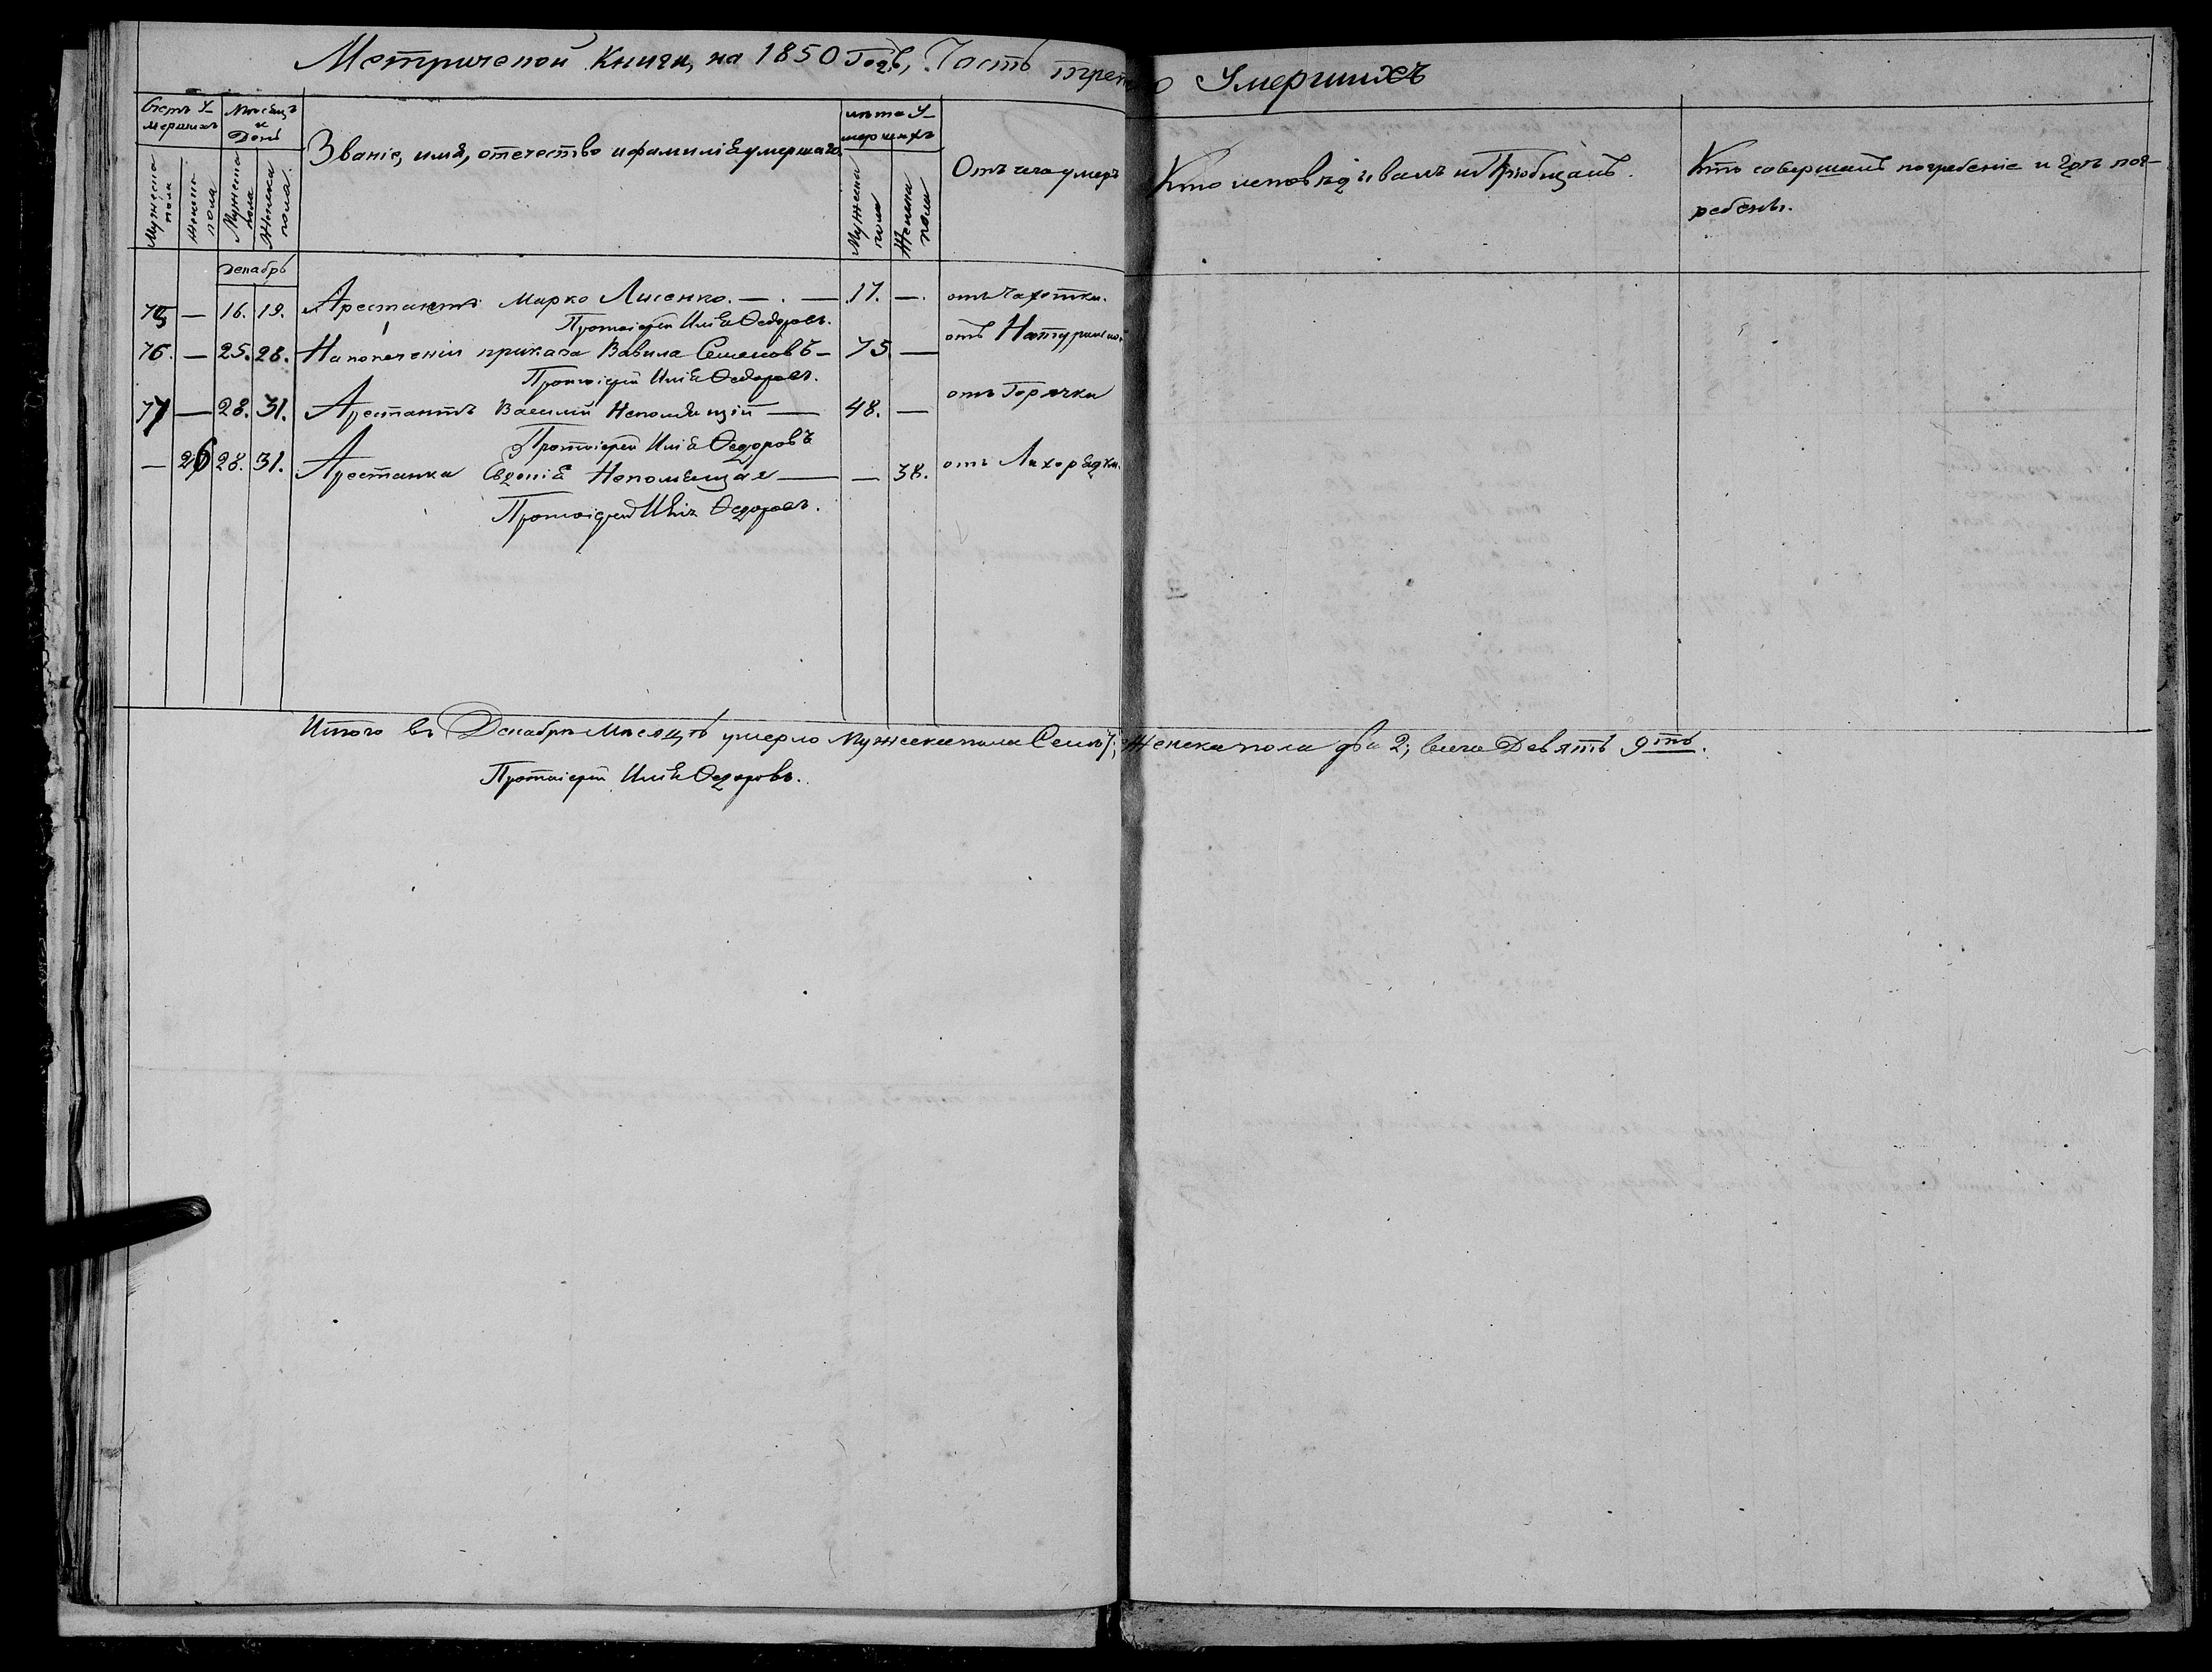 Метрической Книги, на 1850 Годъ, Часть третья Умершихъ
Счетъ Умершихъ
Мѣсяцъ и День
Званіе, имя, отечество и фамилія умершаго.
лѣта Умершихъ
Отъ чего умеръ
Кто исповѣдывалъ и Пріобщалъ.
Кто совершалъ погребеніе и гдѣ погребены.
Мужеска пола
Женска пола
Мужеска пола
Женска пола.
Мужеска пола
Женска пола
Декабрь
75 — 16. 19. Арестантъ Марко Лисенко. — . — 17. —. отъ Чахотки.
Протоіерей Илія Ѳедоровъ.
76. — 25. 28. На попеченіи приказа Вавила Семеновъ — 75 — отъ Натуральной
Протоіерей Илія Ѳедоровъ.
77 — 28. 31. Арестантъ Василій Непомнящій — 48. — отъ Горячки
Протоіерей Илія Ѳедоровъ
— 26 28. 31. Арестанка Евдокія Непомнящая — — 38. отъ Лихорадки.
Протоіерей Илія Ѳедоровъ.
Итого въ Декабрѣ Мѣсяцѣ умерло Мужеска пола Семь 7; Женска пола два 2; всего Девять 9ть.
Протоіерей Илія Ѳедоровъ.